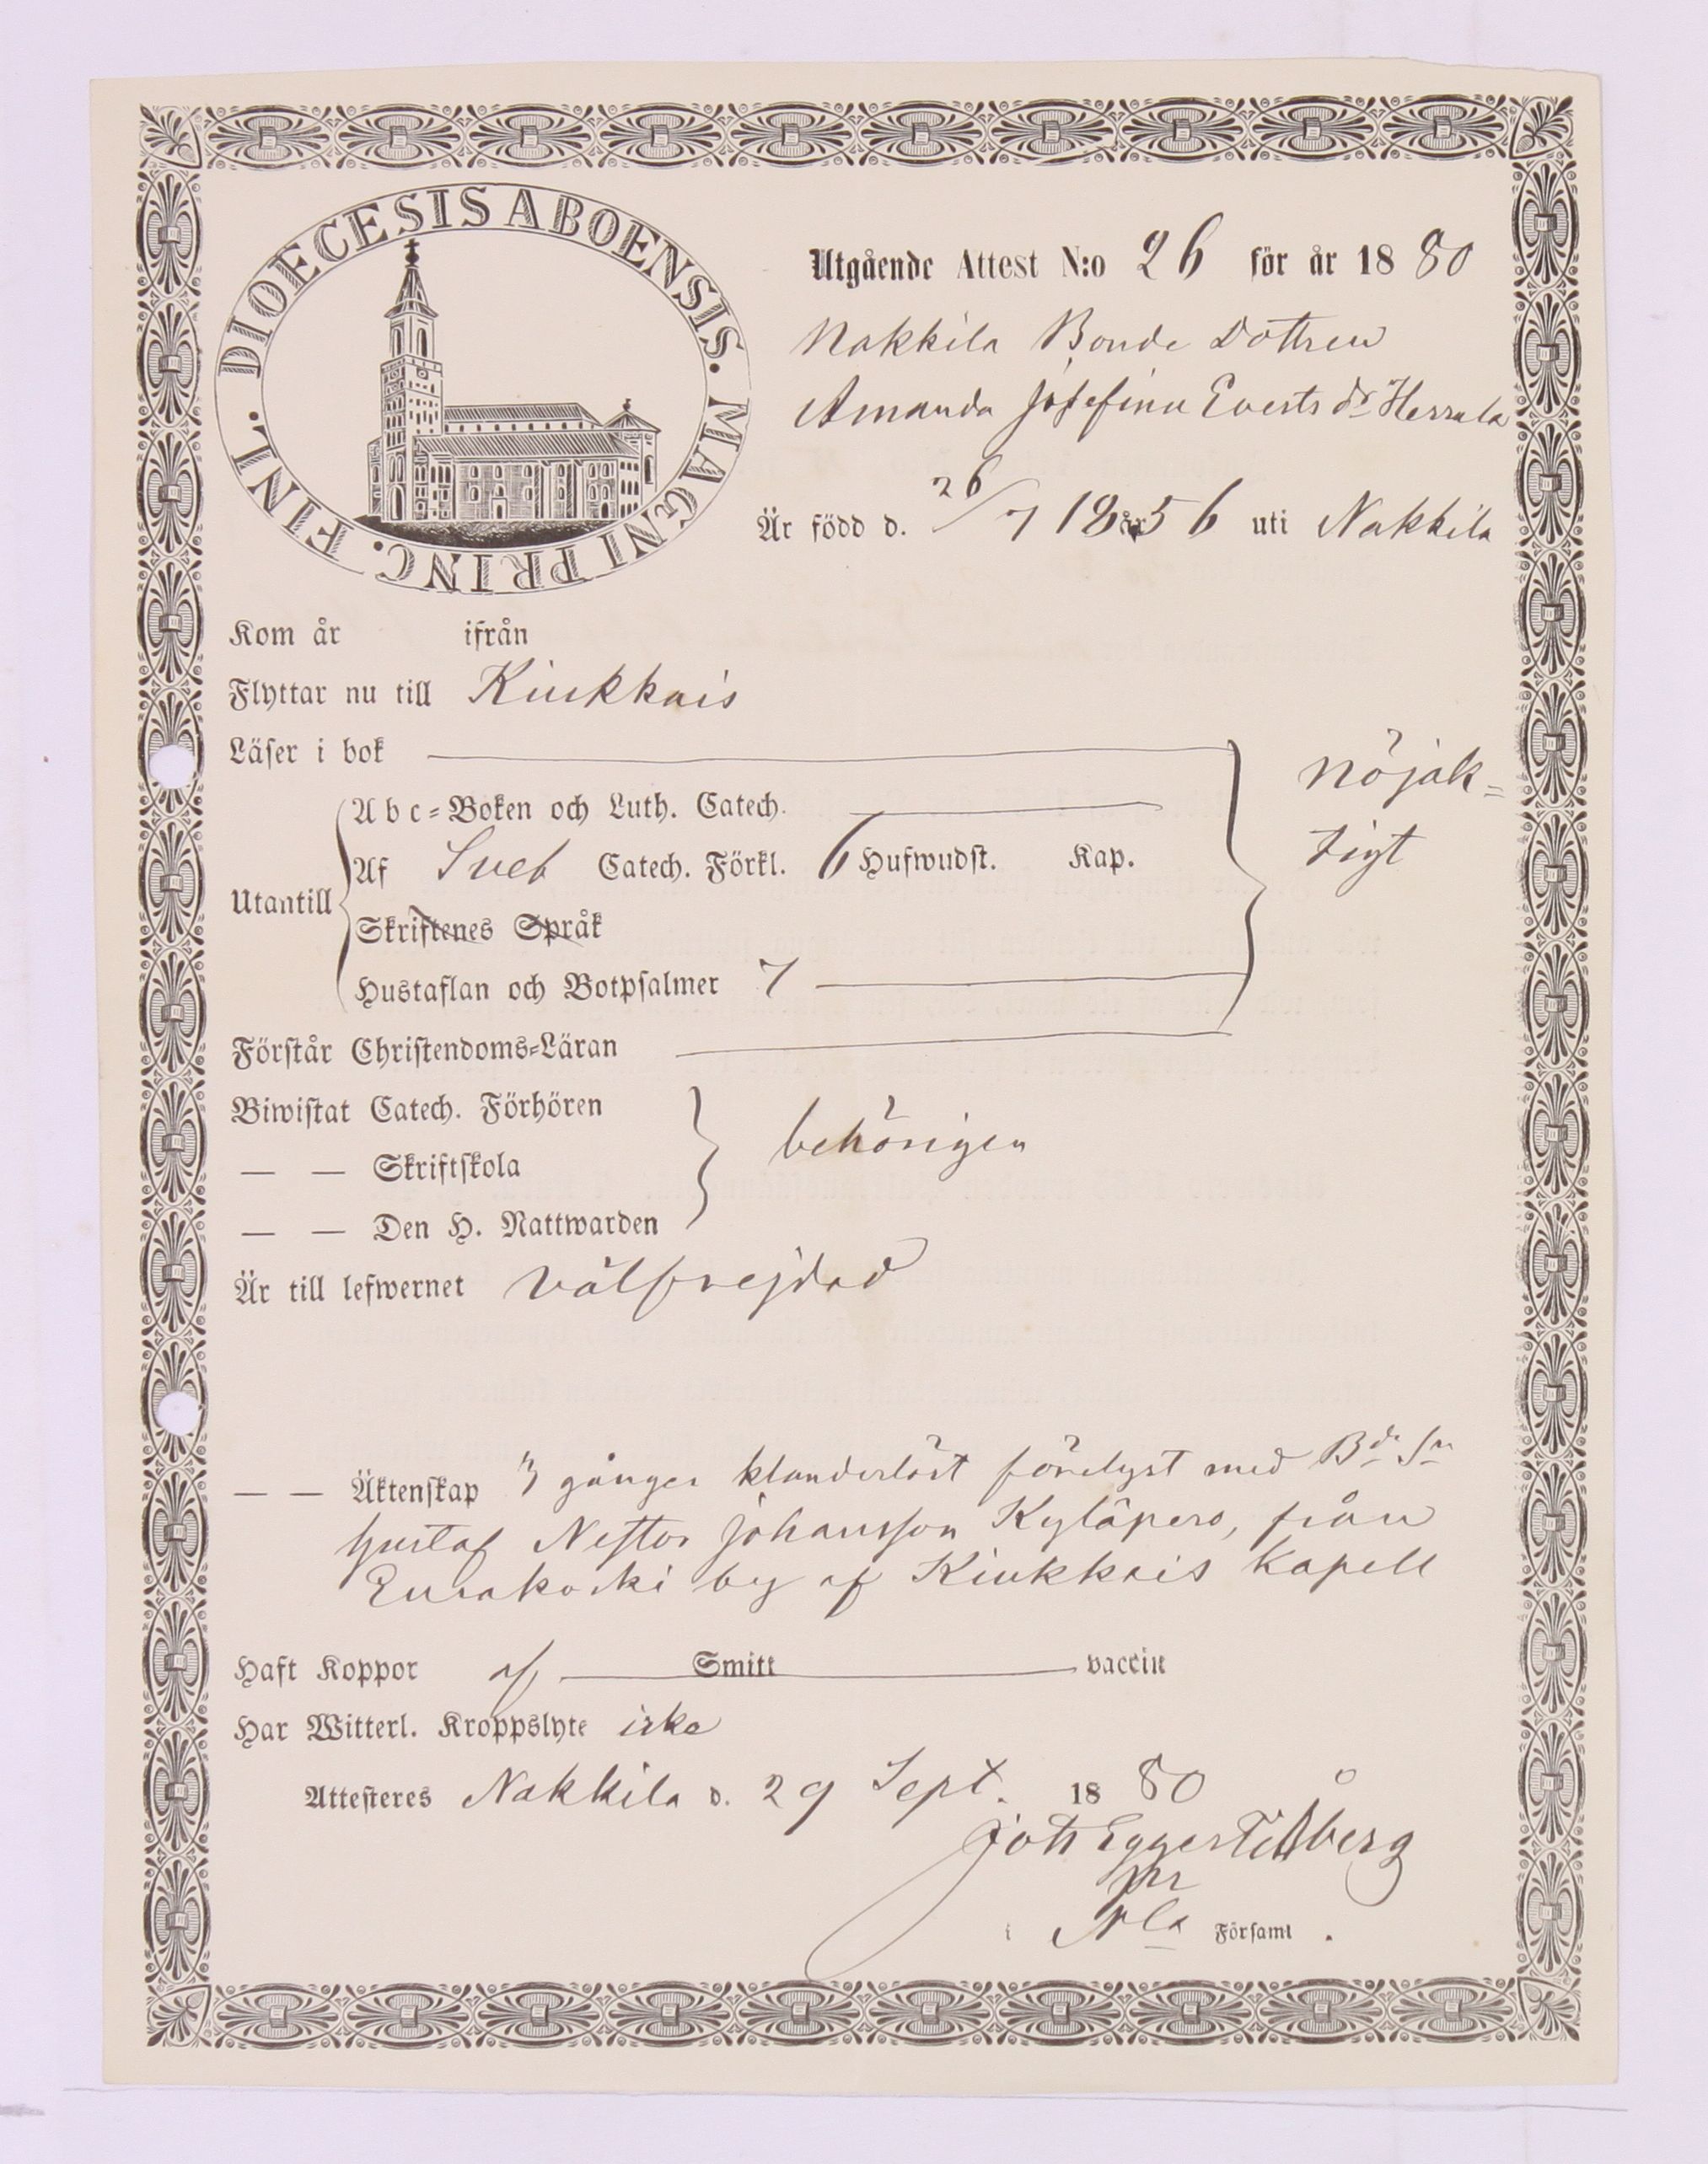 DIOECESIS ABOENSIS. MAGNI PRINC. FINL.
Utgående Attest N:o 26 för år 1880
Nakkila Bonde Dottren
Amanda Josefina Everts dr Herrala
Är född d. 26/7 1856 uti Nakkila
Kom år ifrån
Flyttar nu till Kiukkais
Läser i bok
nöjak=
tigt
Utantill
Abc=Boken och Luth. Catech.
Af Sveb Catech. Förkl. 6 Hufwudst. Kap.
Skriftenes Språk
Hustaflan och Botpsalmer 7
Förstår Christendoms=Läran
Biwistat Catech. Förhören
— — Skriftskola
— — Den H. Nattwarden
behörigen
Är till lefwernet välfrejdad
— — Äktenskap 3 gånger klanderlöst förelyst med Bde Sn
Gustaf Nestor Johansson Kyläpero, från
Eurakoski by af Kiukkais Kapell
Haft Koppor af Smitt vaccin
Har Witterl. Kroppslyte icke
Attesteres Nakkila d. 29 Sept. 1880
Joh Eggert
i Nla Församl .